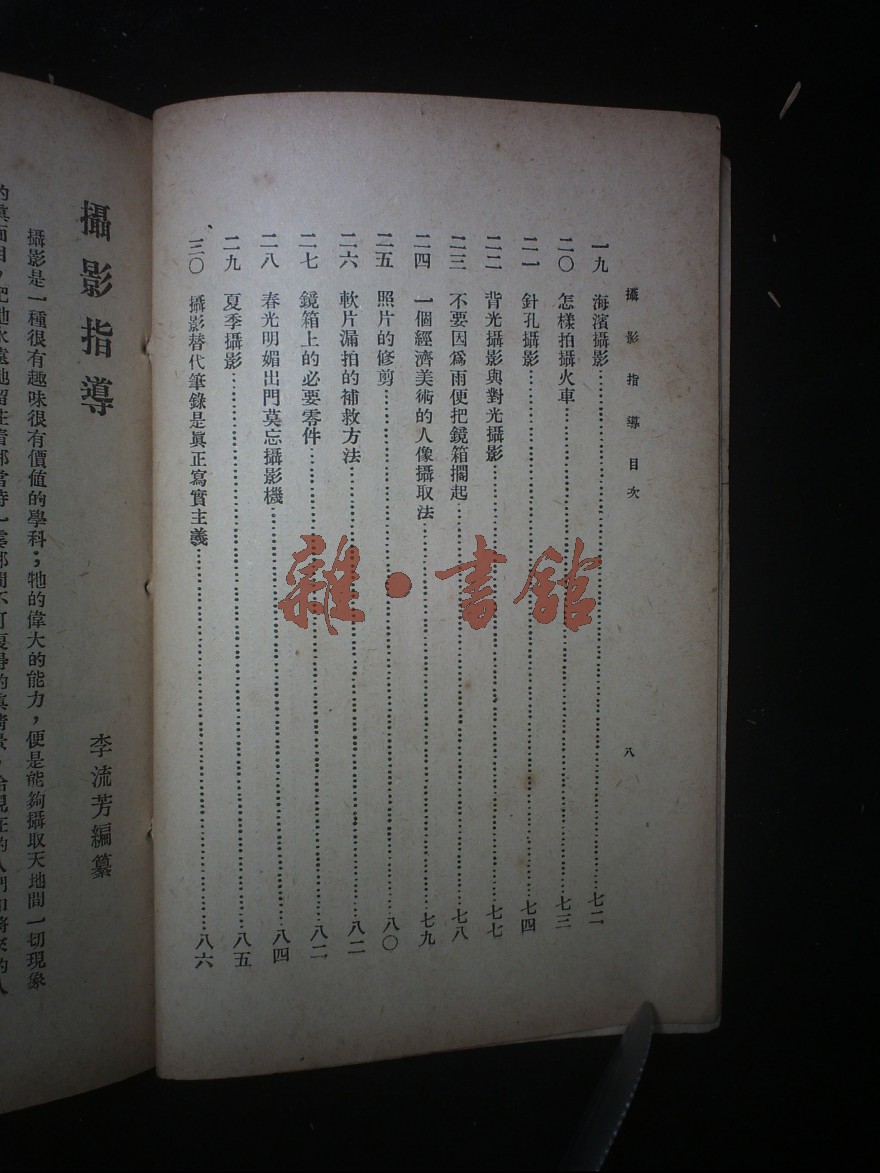 攝影指導目次
八
一九 海濱攝影……七二
二〇 怎樣拍攝火車……七三
二一 針孔攝影……七四
二二 背光攝影與對光攝影……七七
二三 不要因爲雨便把鏡箱擱起……七八
二四 一個經濟美術的人像攝取法……七九
二五 照片的修剪……八〇
二六 軟片漏拍的補救方法……八二
二七 鏡箱上的必要零件……八二
二八 春光明媚出門莫忘攝影機……八四
二九 夏季攝影……八五
三〇 攝影替代筆錄是眞正寫實主義……八六
雜·書館
攝影指導
李流芳編纂
攝影是一種很有趣味很有價値的學科；牠的偉大的能力，便是能夠攝取天地間一切現象